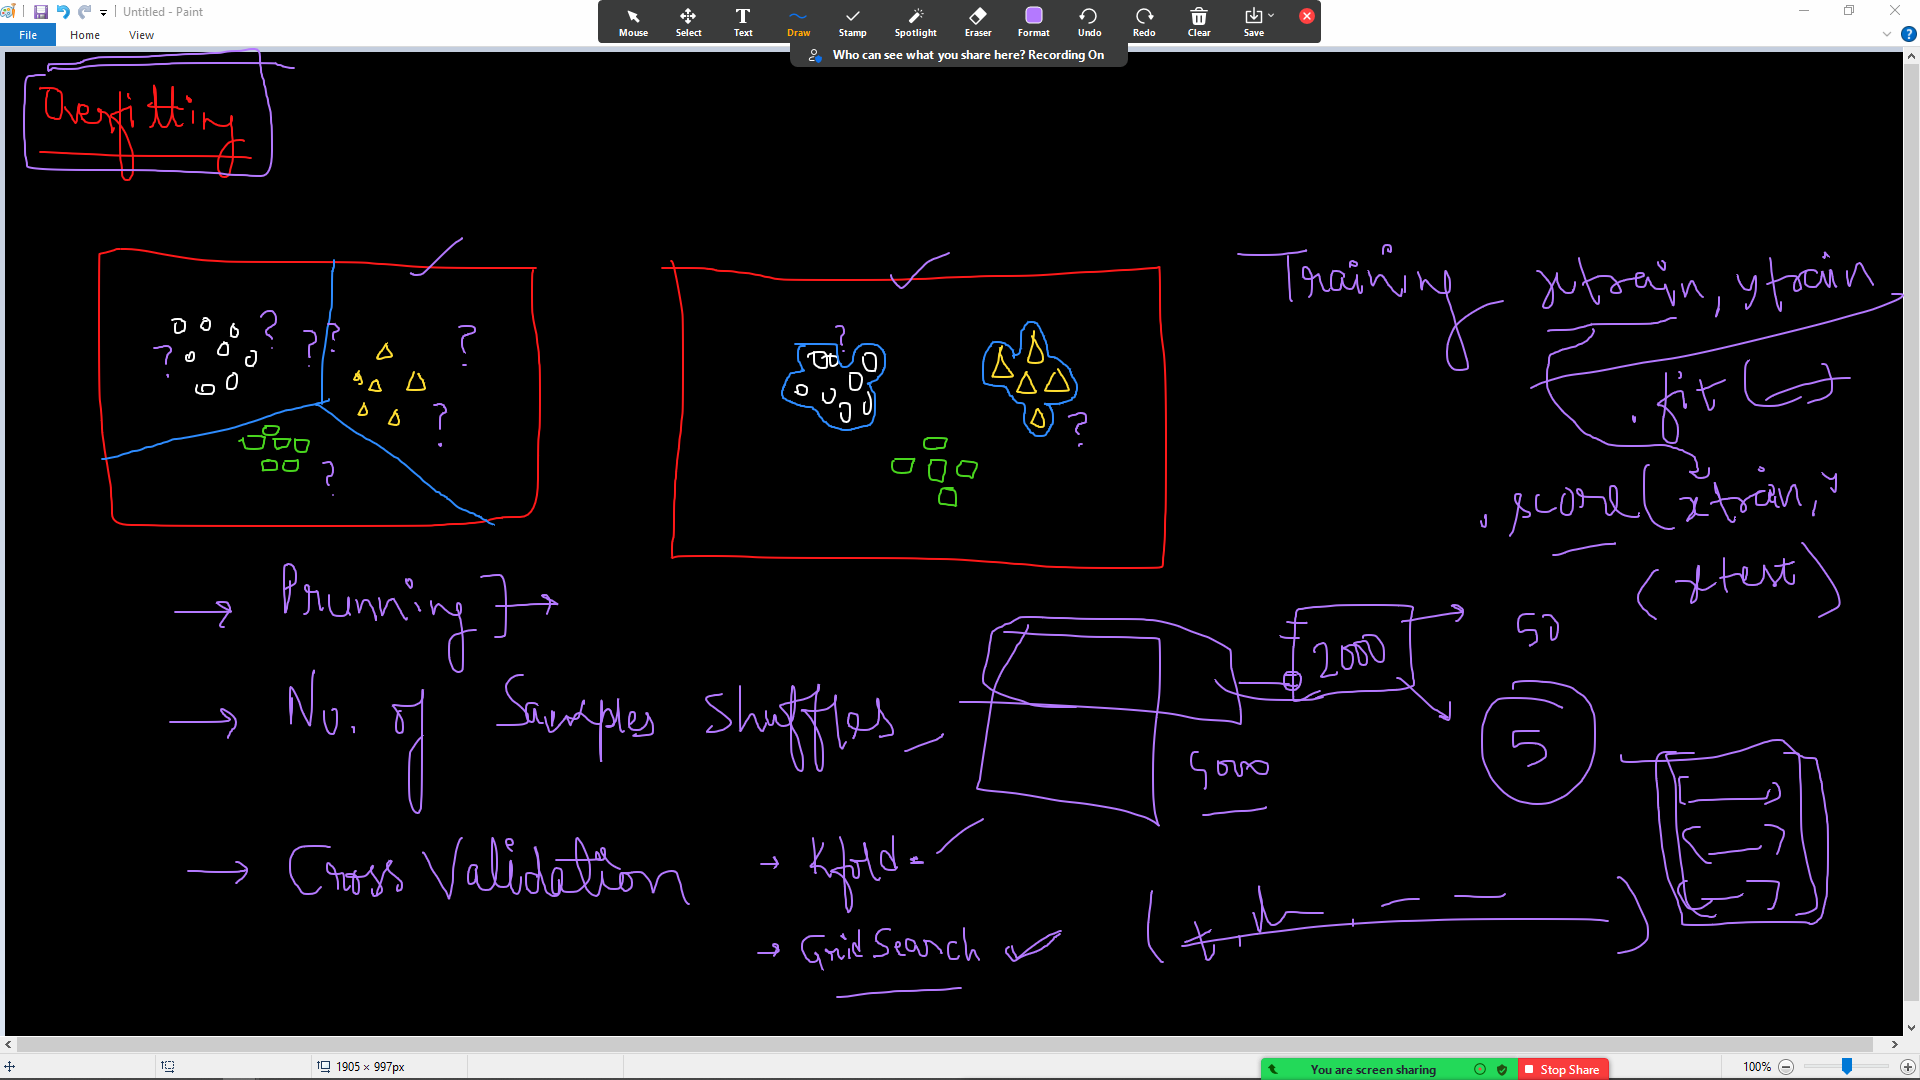 Untitled - Paint
File Home View
Mouse Select Text Draw Stamp Spotlight Eraser Format Undo Redo Clear Save
Who can see what you share here? Recording On
Overfitting
? ? ? ? ? ? ?
? ?
Training xtrain, ytrain
.fit ( )
.score (xtrain, y
(xtest)
→ Prunning ] →
2000
50
→ No. of Samples Shuffles
5000
5
→ Cross Validation
→ Kfold
→ Grid Search ✓
1905 × 997px
You are screen sharing Stop Share
100%